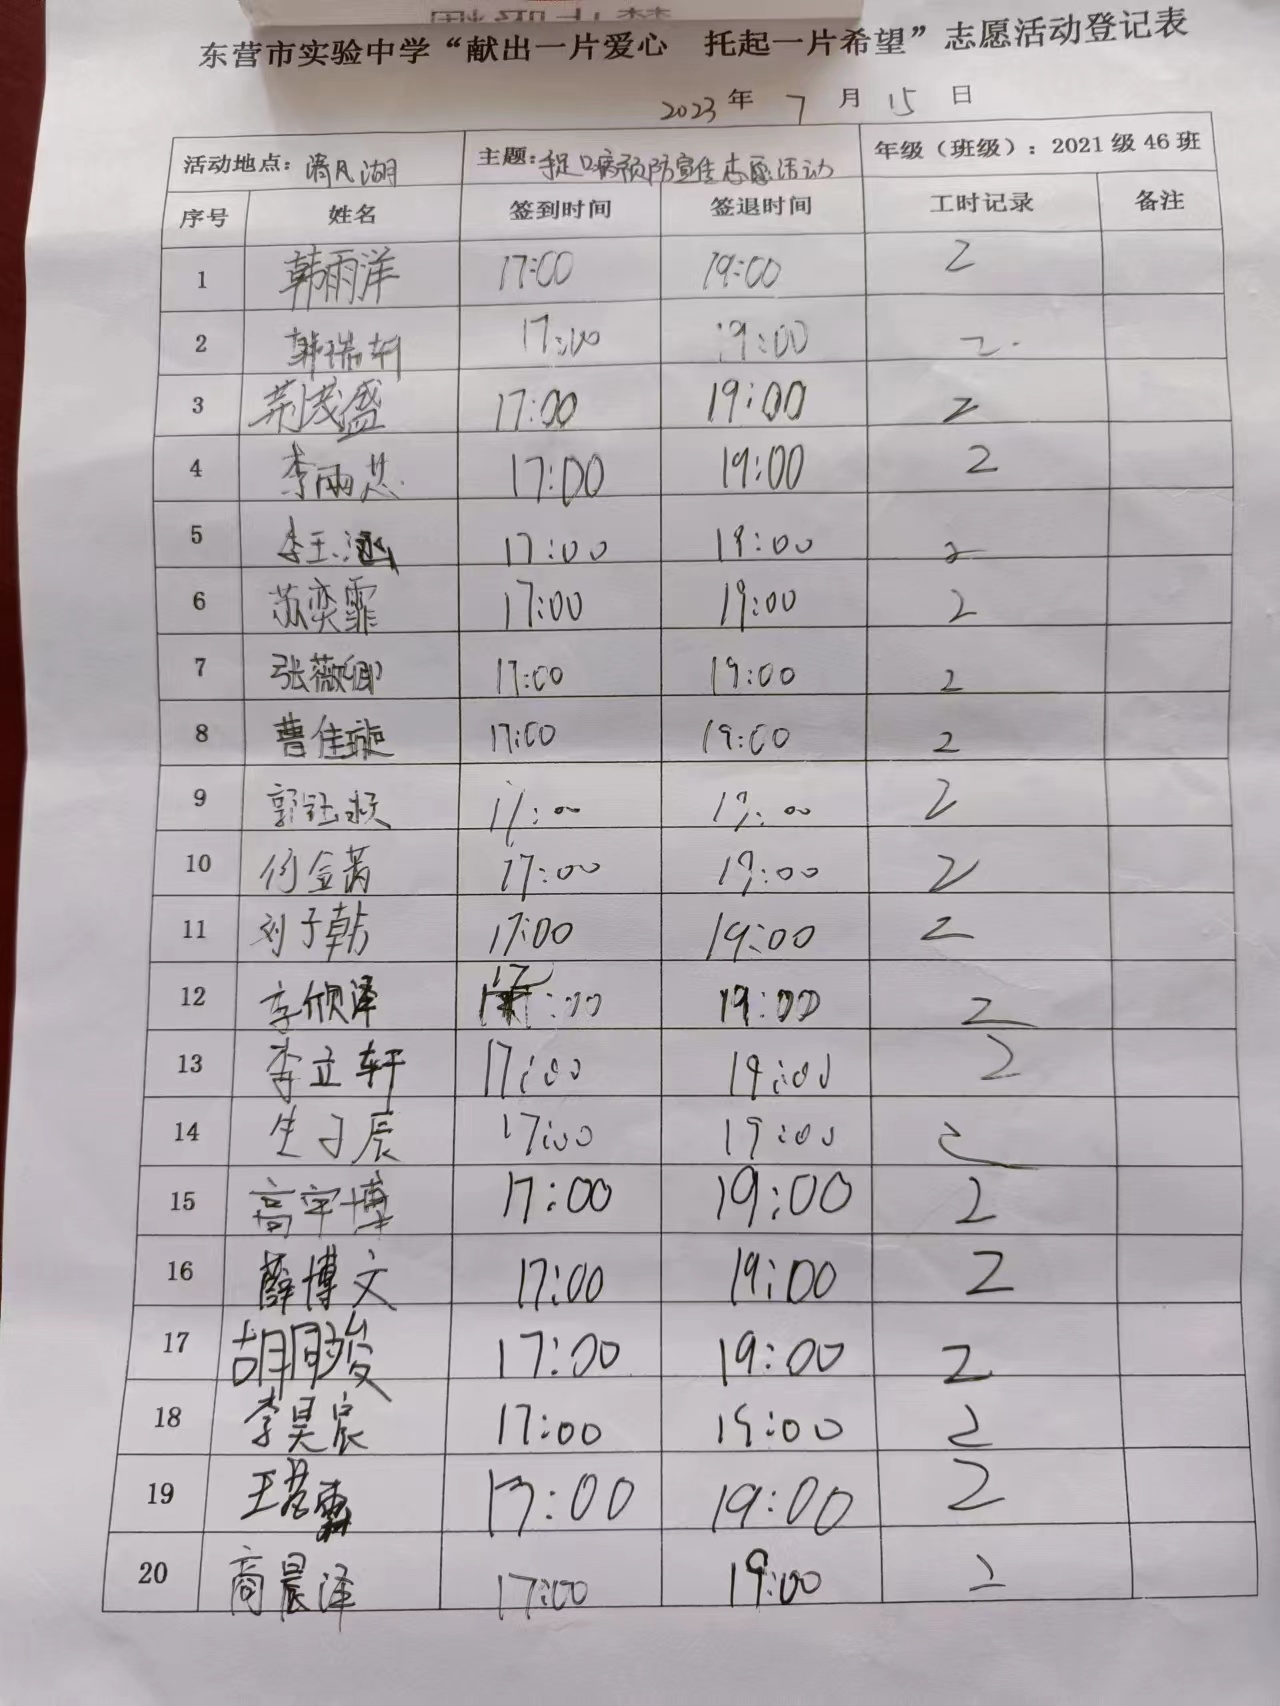 东营市实验中学“献出一片爱心 托起一片希望”志愿活动登记表
2023 年 7 月 15 日
活动地点: 清风湖 主题: 手足口病预防宣传志愿活动 年级（班级）: 2021 级 46 班
序号 姓名 签到时间 签退时间 工时记录 备注
1 韩雨洋 17:00 19:00 2
2 韩瑞轩 17:00 19:00 2
3 荆茂盛 17:00 19:00 2
4 李雨芯 17:00 19:00 2
5 李玉涵 17:00 19:00 2
6 苏奕霏 17:00 19:00 2
7 张薇卿 17:00 19:00 2
8 曹佳璇 17:00 19:00 2
9 郭钰 17:00 19:00 2
10 17:00 19:00 2
11 刘子韩 17:00 19:00 2
12 李欣泽 17:00 19:00 2
13 李立轩 17:00 19:00 2
14 生子辰 17:00 19:00 2
15 高宇博 17:00 19:00 2
16 薛博文 17:00 19:00 2
17 胡同骏 17:00 19:00 2
18 李昊宸 17:00 19:00 2
19 王若霖 17:00 19:00 2
20 商晨泽 17:00 19:00 2